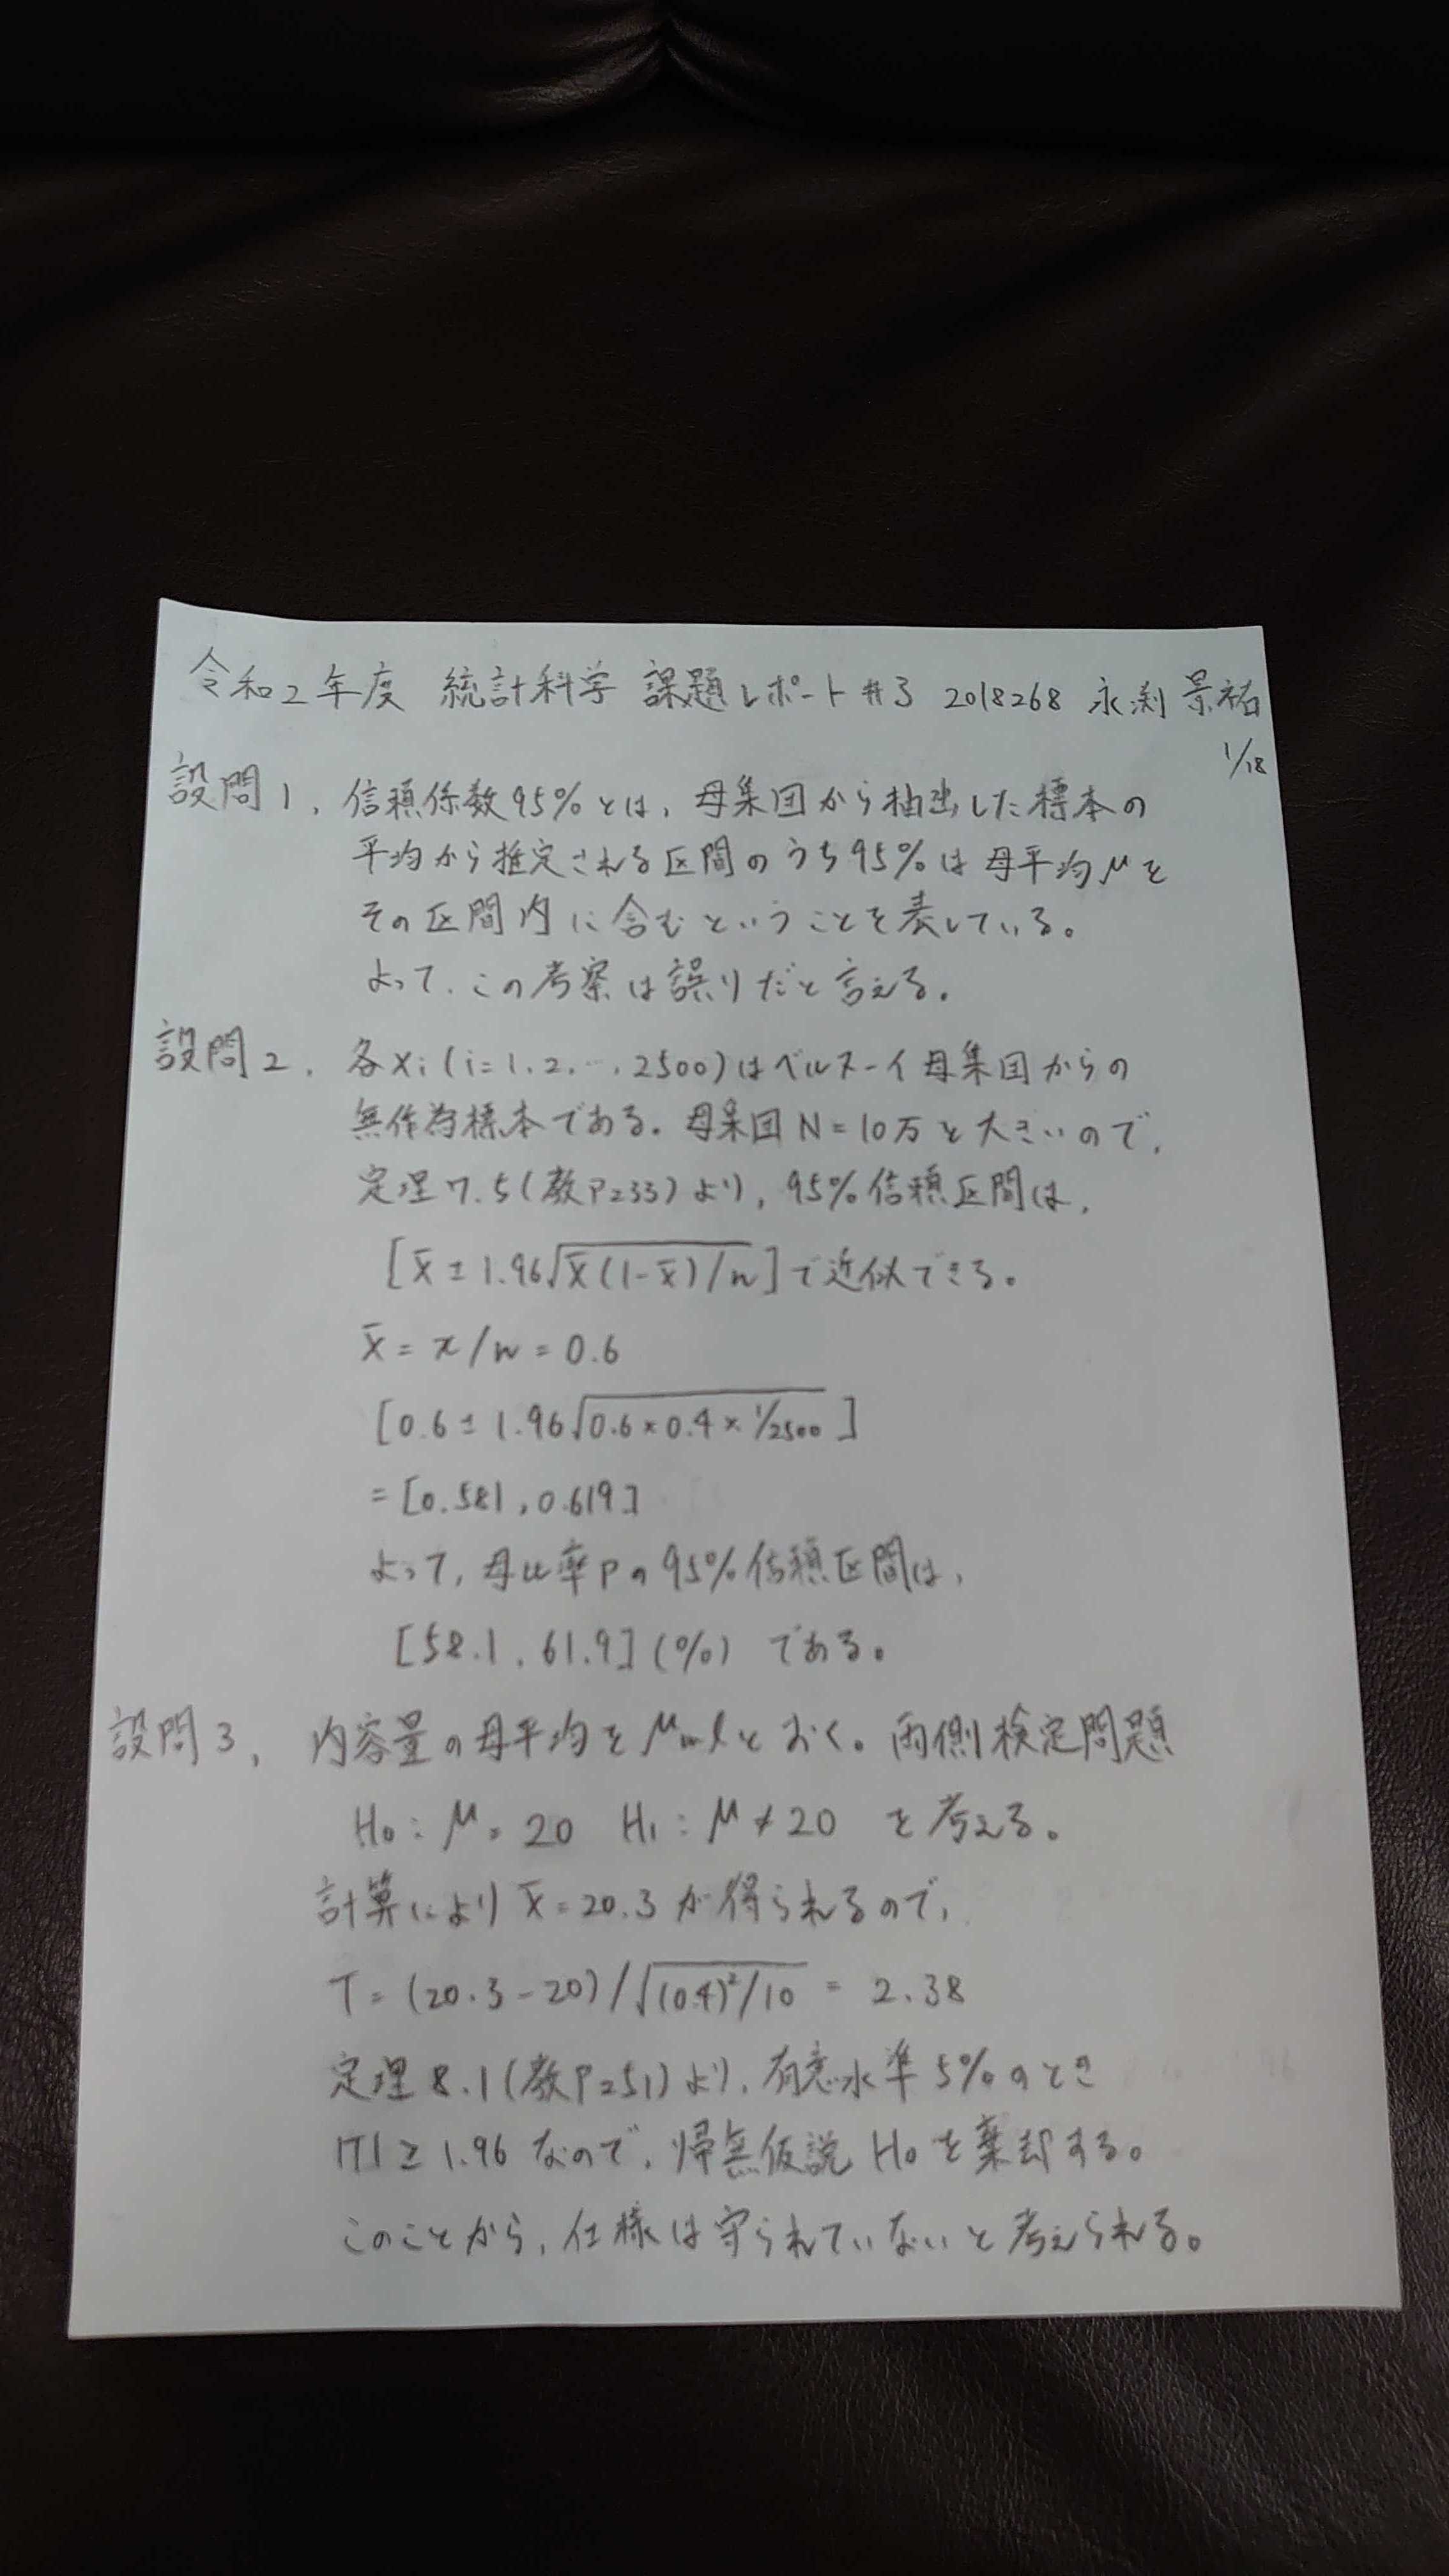 令和2年度 統計科学 課題レポート #3 2018268 永渕 景祐
1/18
設問1, 信頼係数95%とは, 母集団から抽出した標本の
平均から推定される区間のうち95%は母平均μを
その区間内に含むということを表している。
よって, この考察は誤りだと言える。
設問2, 各Xi (i=1,2,…,2500)はベルヌーイ母集団からの
無作為標本である。母集団N=10万と大きいので,
定理7.5(教P233)より, 95%信頼区間は,
[X̄ ± 1.96√X̄(1-X̄)/n] で近似できる。
X̄ = x/n = 0.6
[0.6 ± 1.96√0.6×0.4×1/2500]
= [0.581, 0.619]
よって, 母比率Pの95%信頼区間は,
[58.1, 61.9] (%) である。
設問3, 内容量の母平均をμmlとおく。両側検定問題
H₀: μ = 20 H₁: μ ≠ 20 を考える。
計算によりX̄=20.3が得られるので,
T = (20.3-20)/√(0.4)²/10 = 2.38
定理8.1(教P251)より, 有意水準5%のとき
|T| ≧ 1.96 なので, 帰無仮説H₀を棄却する。
このことから, 仕様は守られていないと考えられる。